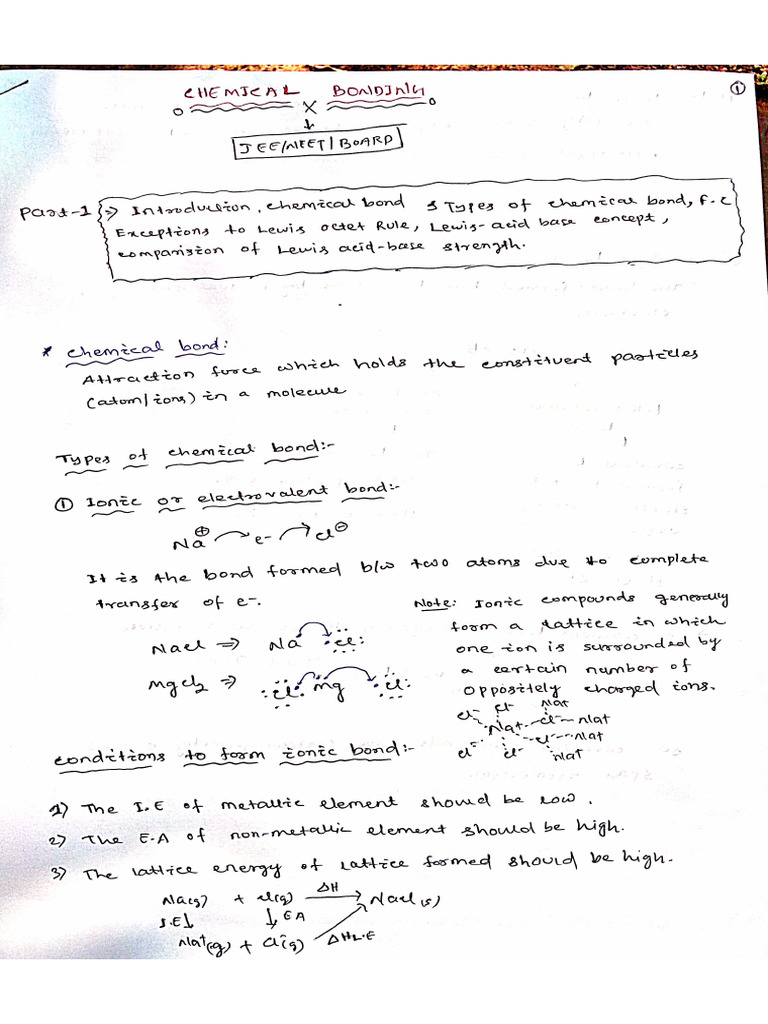 CHEMICAL BONDING
①
JEE/NEET/BOARD
Part-1 } ⇒ Introduction, chemical bond & Types of chemical bond, F.C
Exceptions to Lewis octet Rule, Lewis-acid base concept,
comparision of Lewis acid-base strength.
* Chemical bond:
Attraction force which holds the constituent particles
(atom/ions) in a molecule
Types of chemical bond:-
① Ionic or electrovalent bond:-
Na⊕ e- Cl⊖
It is the bond formed b/w two atoms due to complete
transfer of e-.
NaCl ⇒ Na Cl:
MgCl2 ⇒ :Cl Mg Cl:
Note: Ionic compounds generally
form a lattice in which
one ion is surrounded by
a certain number of
oppositely charged ions.
Cl- Cl- Na+
Na+ Cl- Na+
Cl- Na+
Cl- Cl- Na+
conditions to form ionic bond:-
1) The I.E of metallic element should be low.
2) The E.A of non-metallic element should be high.
3) The lattice energy of lattice formed should be high.
Na(g) + Cl(g) ΔH → NaCl(s)
I.E↓ ↓EA
Na+(g) + Cl-(g) ΔHL.E